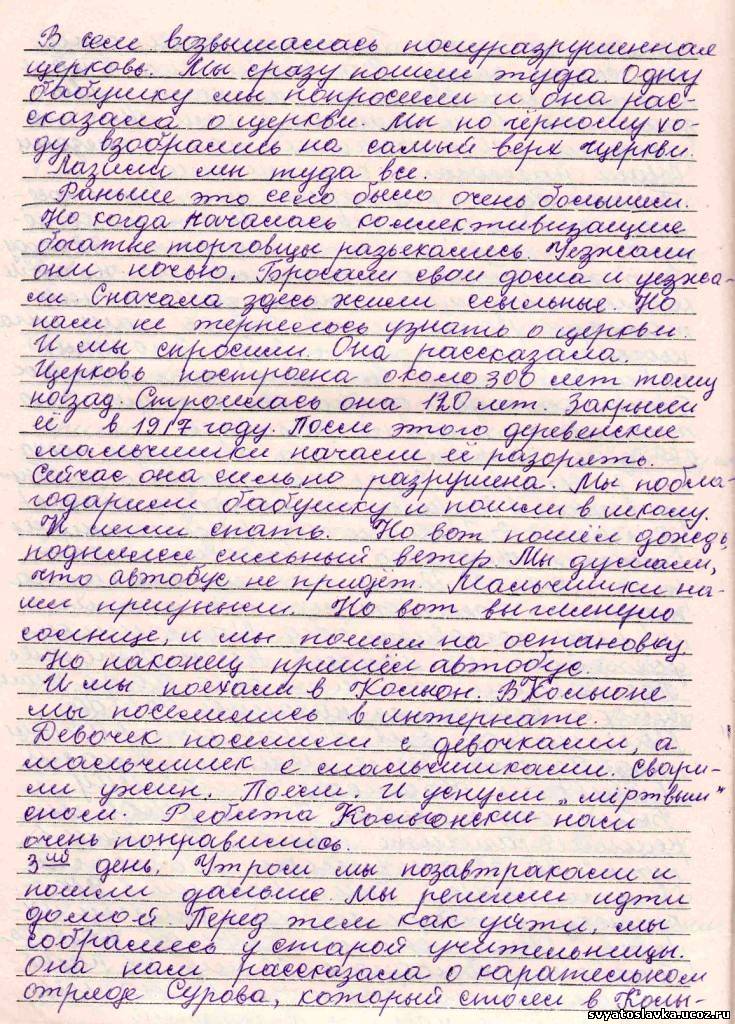 В селе возвышалась полуразрушенная
церковь. Мы сразу пошли туда. Одну
бабушку мы попросили и она рас-
сказала о церкви. Мы по чёрному хо-
ду взобрались на самый верх церкви.
Лазили мы туда все.
Раньше это село было очень большим.
Но когда началась коллективизация
богатые торговцы разъехались. Уезжали
они ночью. Бросали свои дома и уезжа-
ли. Сначала здесь жили ссыльные. Но
нам не терпелось узнать о церкви.
И мы спросили. Она рассказала.
Церковь построена около 300 лет тому
назад. Строилась она 120 лет. Закрыли
её в 1917 году. После этого деревенские
мальчишки начали её разорять.
Сейчас она сильно разрушена. Мы побла-
годарили бабушку и пошли в школу.
И легли спать. Но вот пошёл дождь,
поднялся сильный ветер. Мы думали,
что автобус не придёт. Мальчишки на-
ши приуныли. Но вот выглянуло
солнце, и мы пошли на остановку.
Но наконец пришёл автобус.
И мы поехали в Колыон. В Колыоне
мы поселились в интернате.
Девочек поселили с девочками, а
мальчишек с мальчишками. Свари-
ли ужин. Поели. И уснули „мёртвым"
сном. Ребята Колыонские нам
очень понравились.
3ий день. Утром мы позавтракали и
пошли дальше. Мы решили идти
домой. Перед тем как уйти, мы
собрались у старой учительницы.
Она нам рассказала о карательном
отряде Сурова, который стоял в Колы-
svyatoslavka.ucoz.ru